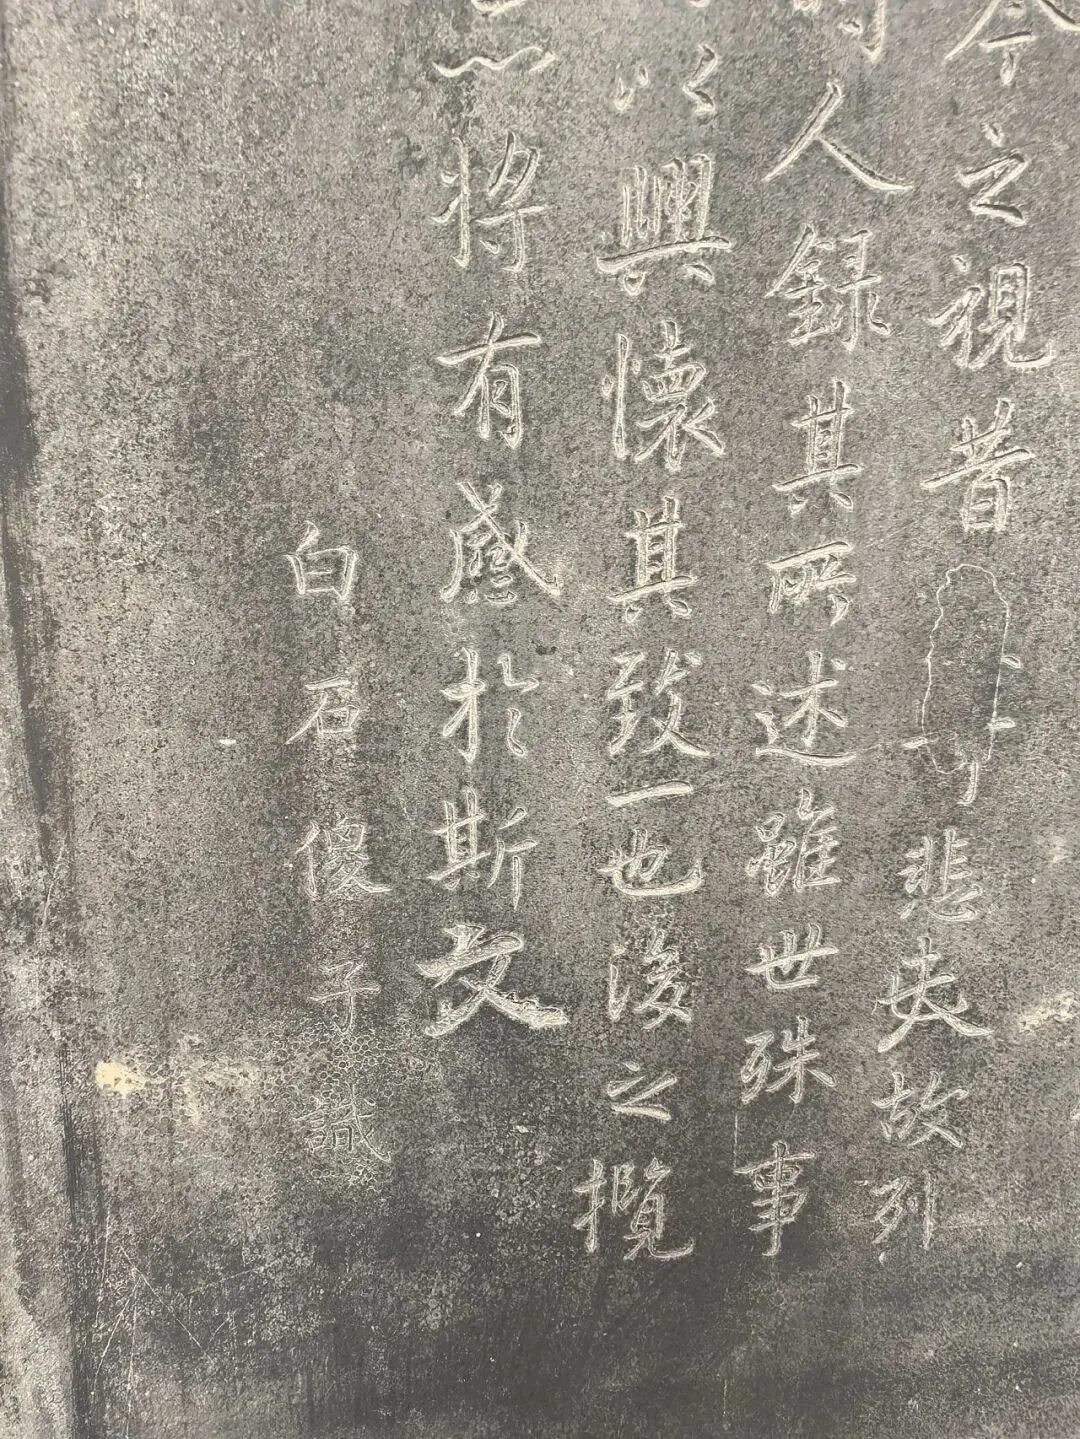 今之視昔悲夫故列
人錄其所述雖世殊事
以興懷其致一也後之攬
將有感於斯文
白石傻子識